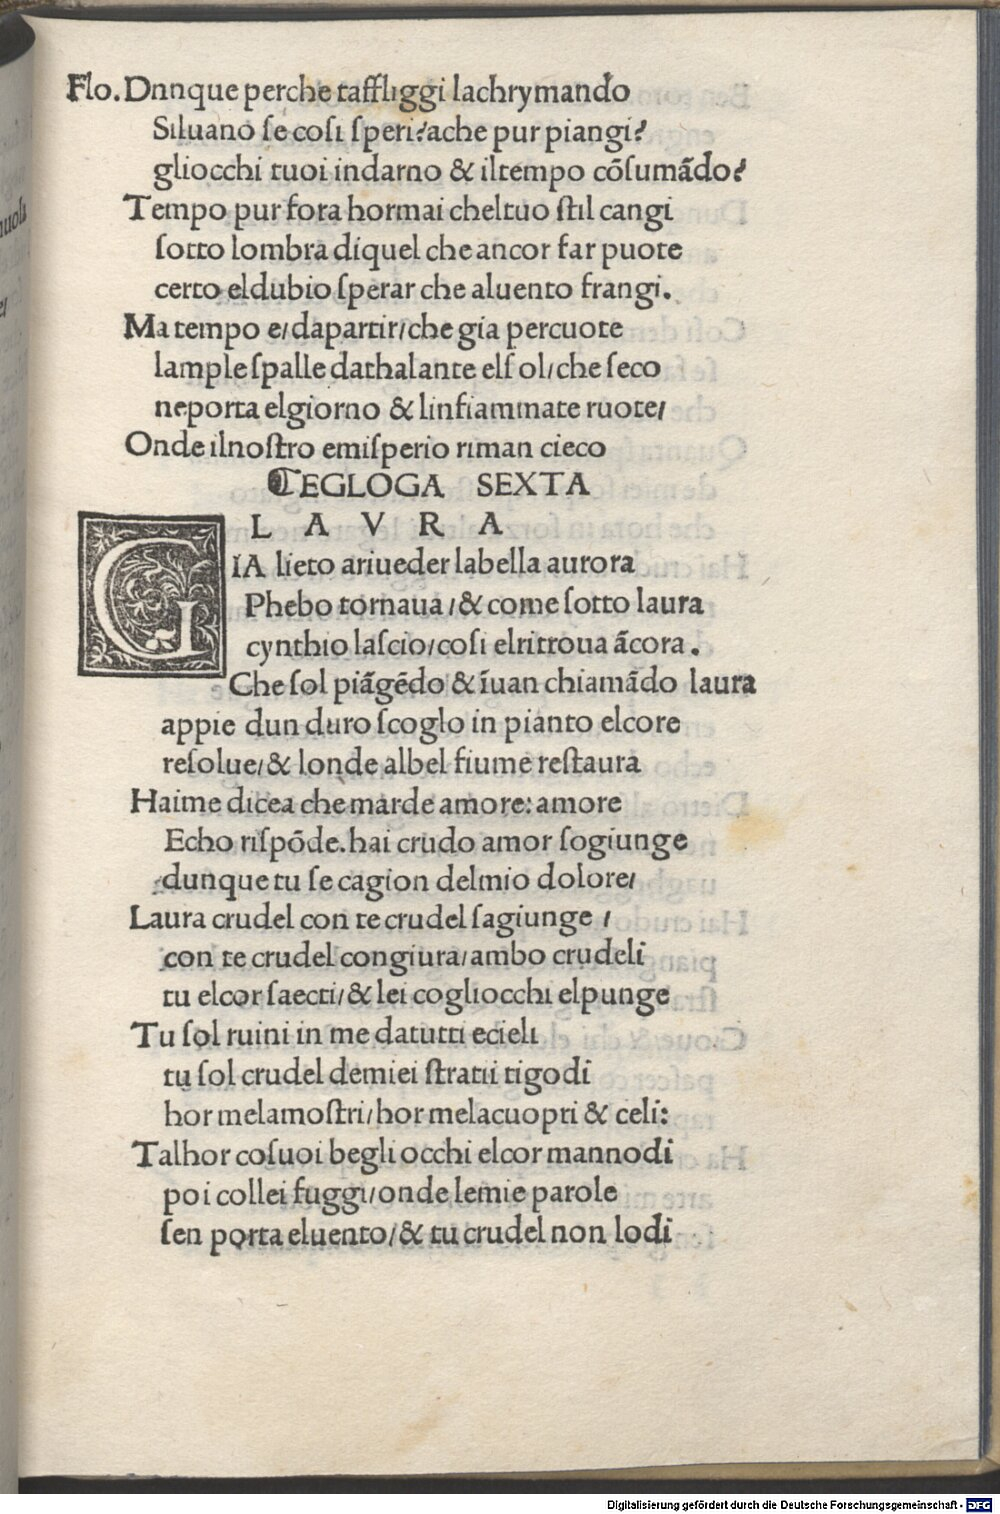 Flo. Dnnque perche taffliggi lachrymando
Siluano ſe coſi ſperi? ache pur piangi?
gliocchi tuoi indarno & iltempo cõſumãdo?
Tempo pur fora hormai cheltuo ſtil cangi
ſotto lombra diquel che ancor far puote
certo eldubio ſperar che aluento frangi.
Ma tempo e/dapartir/che gia percuote
lample ſpalle dathalante elſ ol/che ſeco
neporta elgiorno & linfiammate ruote/
Onde ilnoſtro emiſperio riman cieco
⁋EGLOGA SEXTA
L A V R A
GIA lieto ariueder labella aurora
Phebo tornaua /& come ſotto laura
cynthio laſcio/coſi elritroua ãcora.
Che ſol piãgẽdo & ĩuan chiamãdo laura
appie dun duro ſcoglo in pianto elcore
reſolue/& londe albel fiume reſtaura
Haime dicea che marde amore: amore
Echo riſpõde. hai crudo amor ſogiunge
dunque tu ſe cagion delmio dolore/
Laura crudel con te crudel ſagiunge /
con te crudel congiura/ambo crudeli
tu elcor ſaecti/& lei cogliocchi elpunge
Tu ſol ruini in me datutti ecieli
tu ſol crudel demiei ſtratii tigodi
hor melamoſtri/hor melacuopri & celi:
Talhor coſuoi begli occhi elcor mannodi
poi collei fuggi/onde lemie parole
ſen porta eluento/& tu crudel non lodi
Digitalisierung gefördert durch die Deutsche Forschungsgemeinschaft - DFG